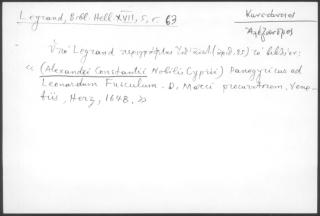 Legrand, Bibl. Hell. XVII, 5, σ. 63
Κωνσταντῖνος
Ἀλέξανδρος
Ὑπὸ Legrand περιγράφεται (ἀρ. 85) τὸ βιβλίον:
« (Alexandri Constantii Nobilis Cyprii) Panegyricus ad
Leonardum Fusculum. D. Marci procuratorem. Vene-
tiis, Herz, 1648. »